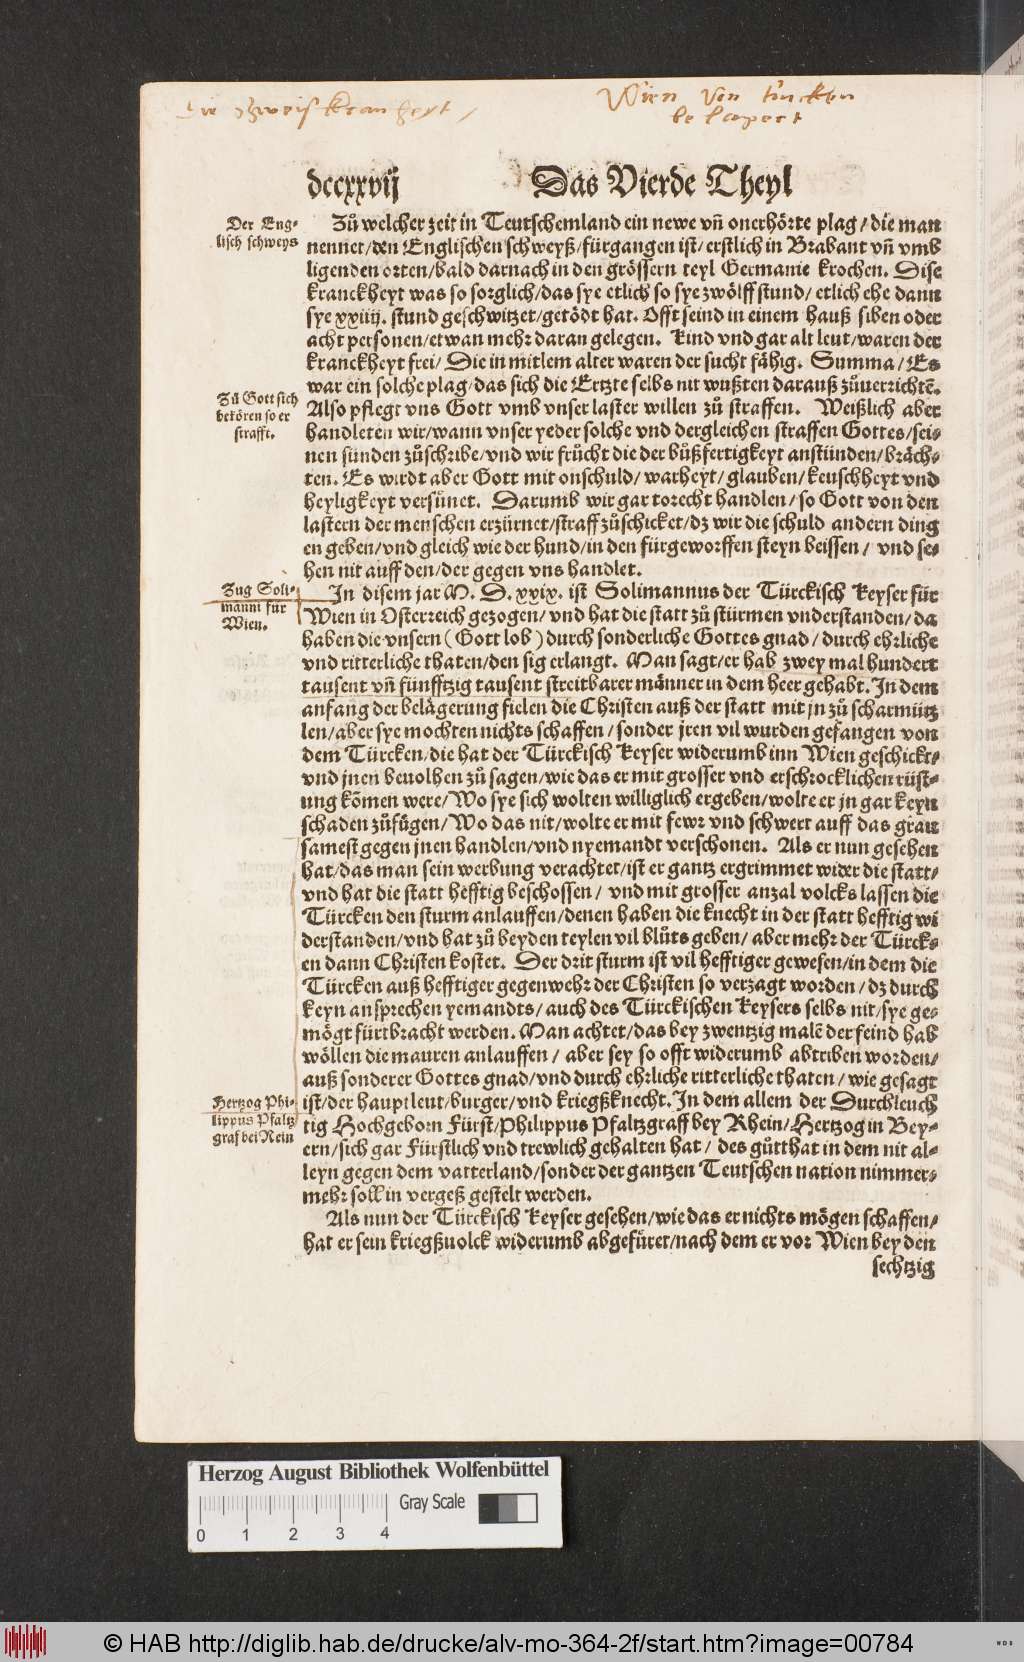 Die schweis kranheyt /
Wien von turcken
belegert
dccxxviij Das Vierde Theyl
Der Eng-
lisch schweys
Zů welcher zeit in Teutschemland ein newe vñ onerhörte plag / die man
nennet / den Englischen schweyß / fürgangen ist / erstlich in Brabant vñ vmb
ligenden orten / bald darnach in den grössern teyl Germanie krochen. Dise
kranckheyt was so sorglich / das sye etlich so sye zwölff stund / etlich ehe dann
sye xxiiij. stund geschwitzet / getödt hat. Offt seind in einem hauß siben oder
acht personen / etwan mehr daran gelegen. Kind vnd gar alt leut / waren der
kranckheyt frei / Die in mitlem alter waren der sucht fähig. Summa / Es
war ein solche plag / das sich die Ertzte selbs nit wußten darauß zůuerrichtē.
Zů Gott sich
bekören so er
strafft.
Also pflegt vns Gott vmb vnser laster willen zů straffen. Weißlich aber
handleten wir / wann vnser yeder solche vnd dergleichen straffen Gottes / sei-
nen sünden zůschribe / vnd wir frücht die der bůßfertigkeyt anstünden / bräch-
ten. Es wirdt aber Gott mit onschuld / warheyt / glauben / keuschheyt vnd
heyligkeyt versünet. Darumb wir gar torecht handlen / so Gott von den
lastern der menschen erzürnet / straff zůschicket / dz wir die schuld andern ding
en geben / vnd gleich wie der hund / in den fürgeworffen steyn beissen / vnd se-
hen nit auff den / der gegen vns handlet.
Zug Soli-
manni für
Wien.
In disem jar M. D. xxix. ist Solimannus der Türckisch Keyser für
Wien in Osterreich gezogen / vnd hat die statt zů stürmen vnderstanden / da
haben die vnsern (Gott lob) durch sonderliche Gottes gnad / durch ehrliche
vnd ritterliche thaten / den sig erlangt. Man sagt / er hab zwey mal hundert
tausent vñ fünfftzig tausent streitbarer männer in dem heer gehabt. In dem
anfang der belägerung fielen die Christen auß der statt mit jn zů scharmütz
len / aber sye mochten nichts schaffen / sonder jren vil wurden gefangen von
dem Türcken / die hat der Türckisch Keyser widerumb inn Wien geschickt /
vnd jnen beuolhen zů sagen / wie das er mit grosser vnd erschrocklichen rüst-
ung kōmen were / Wo sye sich wolten williglich ergeben / wolte er jn gar keyn
schaden zůfügen / Wo das nit / wolte er mit fewr vnd schwert auff das grau
samest gegen jnen handlen / vnd nyemandt verschonen. Als er nun gesehen
hat / das man sein werbung verachtet / ist er gantz ergrimmet wider die statt /
vnd hat die statt hefftig beschossen / vnd mit grosser anzal volcks lassen die
Türcken den sturm anlauffen / denen haben die knecht in der statt hefftig wi
derstanden / vnd hat zů beyden teylen vil blůts geben / aber mehr der Türck-
en dann Christen kostet. Der drit sturm ist vil hefftiger gewesen / in dem die
Türcken auß hefftiger gegenwehr der Christen so verzagt worden / dz durch
keyn ansprechen yemandts / auch des Türckischen Keysers selbs nit / sye ge-
mögt fürtbracht werden. Man achtet / das bey zwentzig malē der feind hab
wöllen die mauren anlauffen / aber sey so offt widerumb abtriben worden /
auß sonderer Gottes gnad / vnd durch ehrliche ritterliche thaten / wie gesagt
Hertzog Phi-
lippus Pfaltz
graf bei Rein
ist / der hauptleut / burger / vnd kriegßknecht. In dem allem der Durchleuch
tig Hochgeborn Fürst / Philippus Pfaltzgraff bey Rhein / Hertzog in Bey-
ern / sich gar Fürstlich vnd trewlich gehalten hat / des gůtthat in dem nit al-
leyn gegen dem vatterland / sonder der gantzen Teutschen nation nimmer-
mehr soll in vergeß gestelt werden.
Als nun der Türckisch Keyser gesehen / wie das er nichts mögen schaffen /
hat er sein kriegßuolck widerumb abgefüret / nach dem er vor Wien bey den
sechtzig
Herzog August Bibliothek Wolfenbüttel
Gray Scale
0 1 2 3 4
© HAB http://diglib.hab.de/drucke/alv-mo-364-2f/start.htm?image=00784